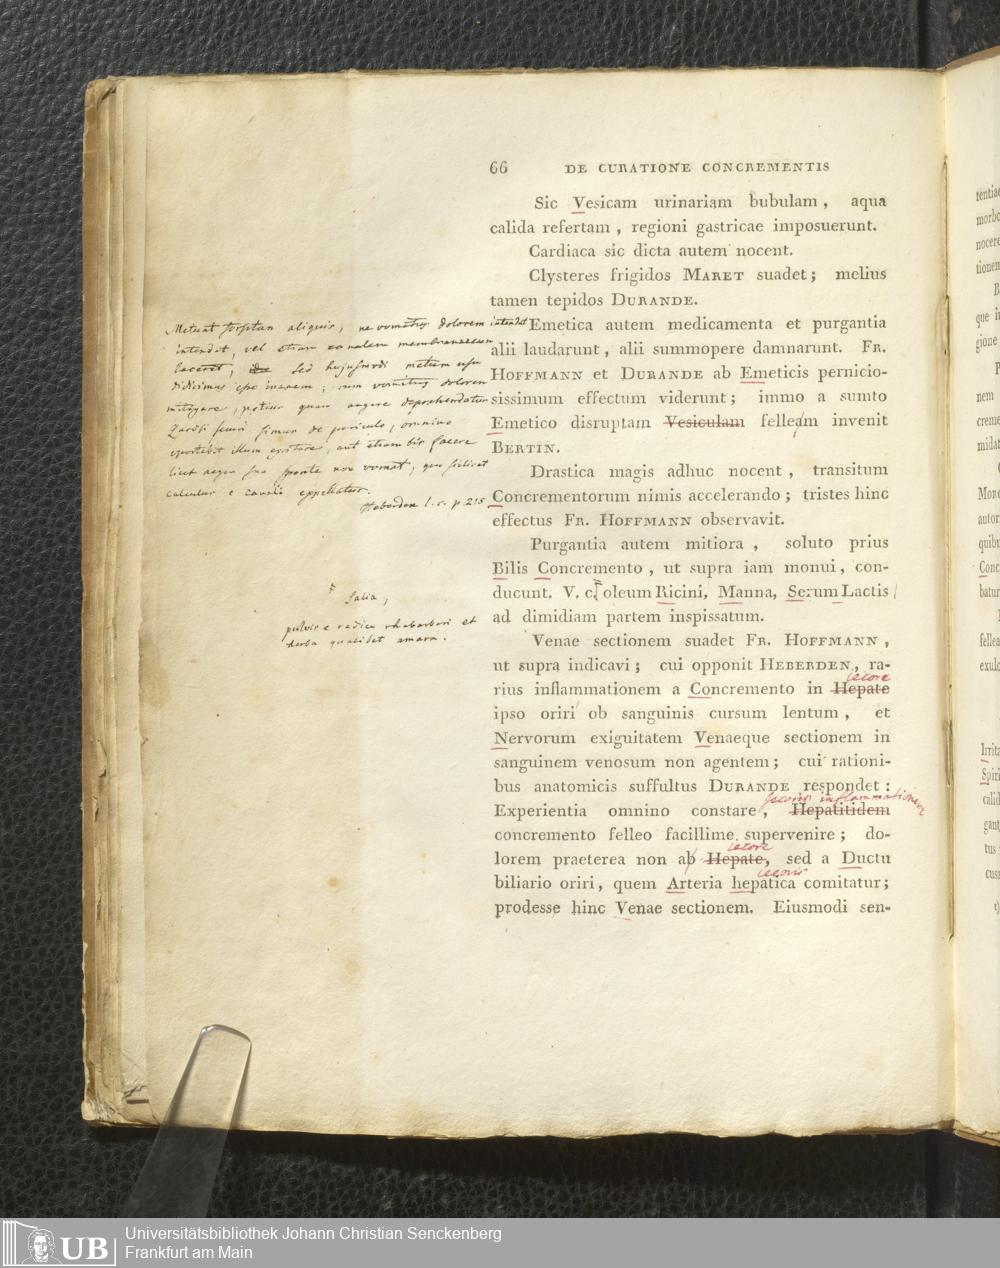 66 DE CURATIONE CONCREMENTIS
Sic Vesicam urinariam bubulam, aqua
calida refertam, regioni gastricae imposuerunt.
Cardiaca sic dicta autem nocent.
Clysteres frigidos MARET suadet; melius
tamen tepidos DURANDE.
Emetica autem medicamenta et purgantia
alii laudarunt, alii summopere damnarunt. FR.
HOFFMANN et DURANDE ab Emeticis pernicio-
sissimum effectum viderunt; immo a sumto
Emetico disruptam Vesiculam felleam invenit
BERTIN.
Drastica magis adhuc nocent, transitum
Concrementorum nimis accelerando; tristes hinc
effectus FR. HOFFMANN observavit.
Purgantia autem mitiora, soluto prius
Bilis Concremento, ut supra iam monui, con-
ducunt. V. c. oleum Ricini, Manna, Serum Lactis
ad dimidiam partem inspissatum.
Venae sectionem suadet FR. HOFFMANN,
ut supra indicavi; cui opponit HEBERDEN, ra-
iecore
rius inflammationem a Concremento in Hepate
ipso oriri ob sanguinis cursum lentum, et
Nervorum exiguitatem Venaeque sectionem in
sanguinem venosum non agentem; cui rationi-
bus anatomicis suffultus DURANDE respondet:
Jecoris inflammationem
Experientia omnino constare, Hepatitidem
concremento felleo facillime supervenire; do-
iecore
lorem praeterea non ab Hepate, sed a Ductu
iecoris
biliario oriri, quem Arteria hepatica comitatur;
prodesse hinc Venae sectionem. Eiusmodi sen-
Metuat forsitan aliquis, ne vomitus dolorem intendat
intendat, vel etiam canalem membranaceum
laceret, sed hujusmodi metum usu
didicimus esse inanem; cum vomitus dolorem
mitigare, potius quam augere deprehendatur
simus de periculo, omnino
oportebit illum excitare, aut etiam bis facere
licet aeger sua sponte non vomat, quo scilicet
calculus e canali expellatur.
Heberden l. c. p. 215
Salia,
pulvis e radice rhabarbari et
herba qualibet amara.
Universitätsbibliothek Johann Christian Senckenberg
Frankfurt am Main
UB